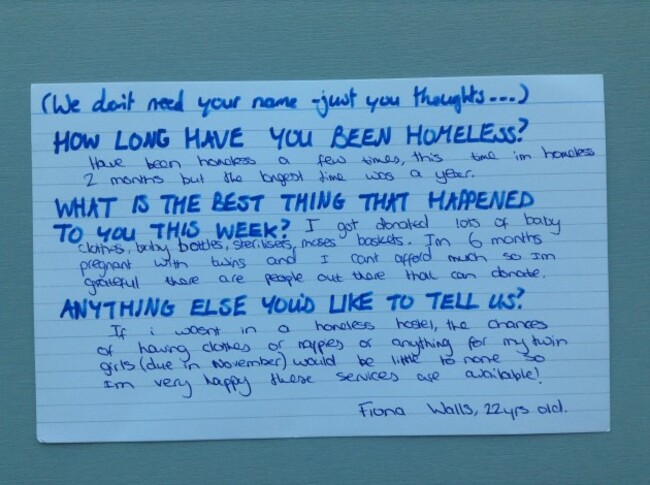 (We don't need your name - just you thoughts...)
HOW LONG HAVE YOU BEEN HOMELESS?
Have been homeless a few times, this time im homeless
2 months but the longest time was a year.
WHAT IS THE BEST THING THAT HAPPENED
TO YOU THIS WEEK? I got donated lots of baby
clothes, baby bottles, sterilisers, moses baskets. Im 6 months
pregnant with twins and I cant afford much so Im
grateful there are people out there that can donate.
ANYTHING ELSE YOU'D LIKE TO TELL US?
If i wasnt in a homeless hostel, the chances
of having clothes or nappies or anything for my twin
girls (due in November) would be little to none so
Im very happy these services are available!
Fiona Walls, 22yrs old.